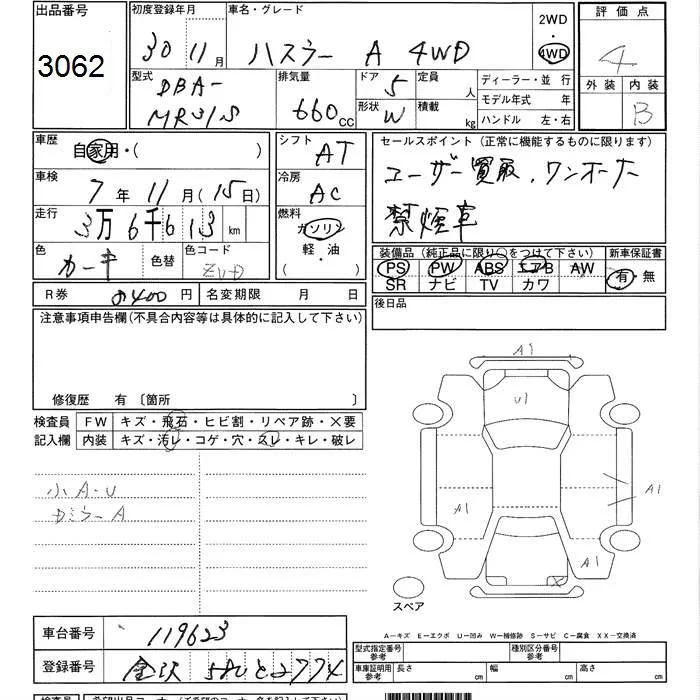 出品番号 初度登録年月 車名・グレード 2WD・4WD 評価点
3062 30年11月 ハスラー A 4WD 4
型式 DBA-MR31S 排気量 660cc ドア 5 形状 W 定員 人 積載 kg ディーラー・並行 モデル年式 年 ハンドル 左・右 外装 内装 B
車歴 自家用・( ) シフト AT セールスポイント (正常に機能するものに限ります)
車検 7年11月(15日) 冷房 AC ユーザー買取、ワンオーナー
走行 3万6千613km 燃料 ガソリン・軽・油 ( ) 禁煙車
色 カーキ 色替 色コード 装備品 (純正品に限り○をつけて下さい) 新車保証書
PS PW ABS エアB AW 有・無
SR ナビ TV カワ
R券 円 名変期限 月 日 後日品
注意事項申告欄(不具合内容等は具体的に記入して下さい)
修復歴 有 〔箇所 〕
検査員記入欄 FW キズ・飛石・ヒビ割・リペア跡・×要
内装 キズ・汚レ・コゲ・穴・スレ・キレ・破レ
小A・U
ドミラーA
A1
U1
A1
A1
A1
X
スペア
A−キズ E−エクボ U−凹み W−補修跡 S−サビ C−腐食 XX−交換済
車台番号 119623
型式指定番号 参考 種別区分番号 参考
登録番号 金沢 581 と 2774
車庫証明用 参考 長さ cm 幅 cm 高さ cm